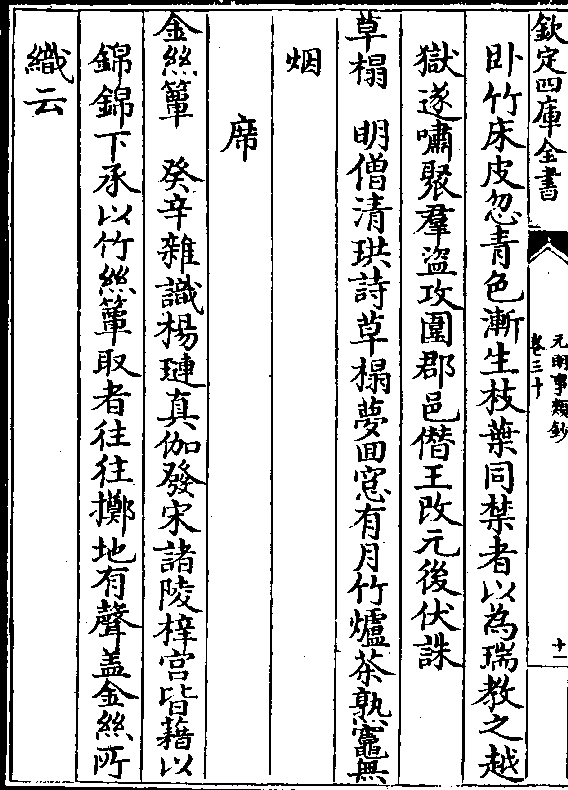 欽定四庫全書
元明事類鈔
卷三十
十一
卧竹床皮忽青色漸生枝葉同禁者以為瑞教之越
獄遂嘯聚羣盜攻圍郡邑僭王改元後伏誅
草榻　明僧清珙詩草榻夢回窓有月竹爐茶熟竈無
烟
席
金絲簟　癸辛雜識楊璉真伽發宋諸陵梓宫皆藉以
錦錦下承以竹絲簟取者往往擲地有聲蓋金絲所
織云